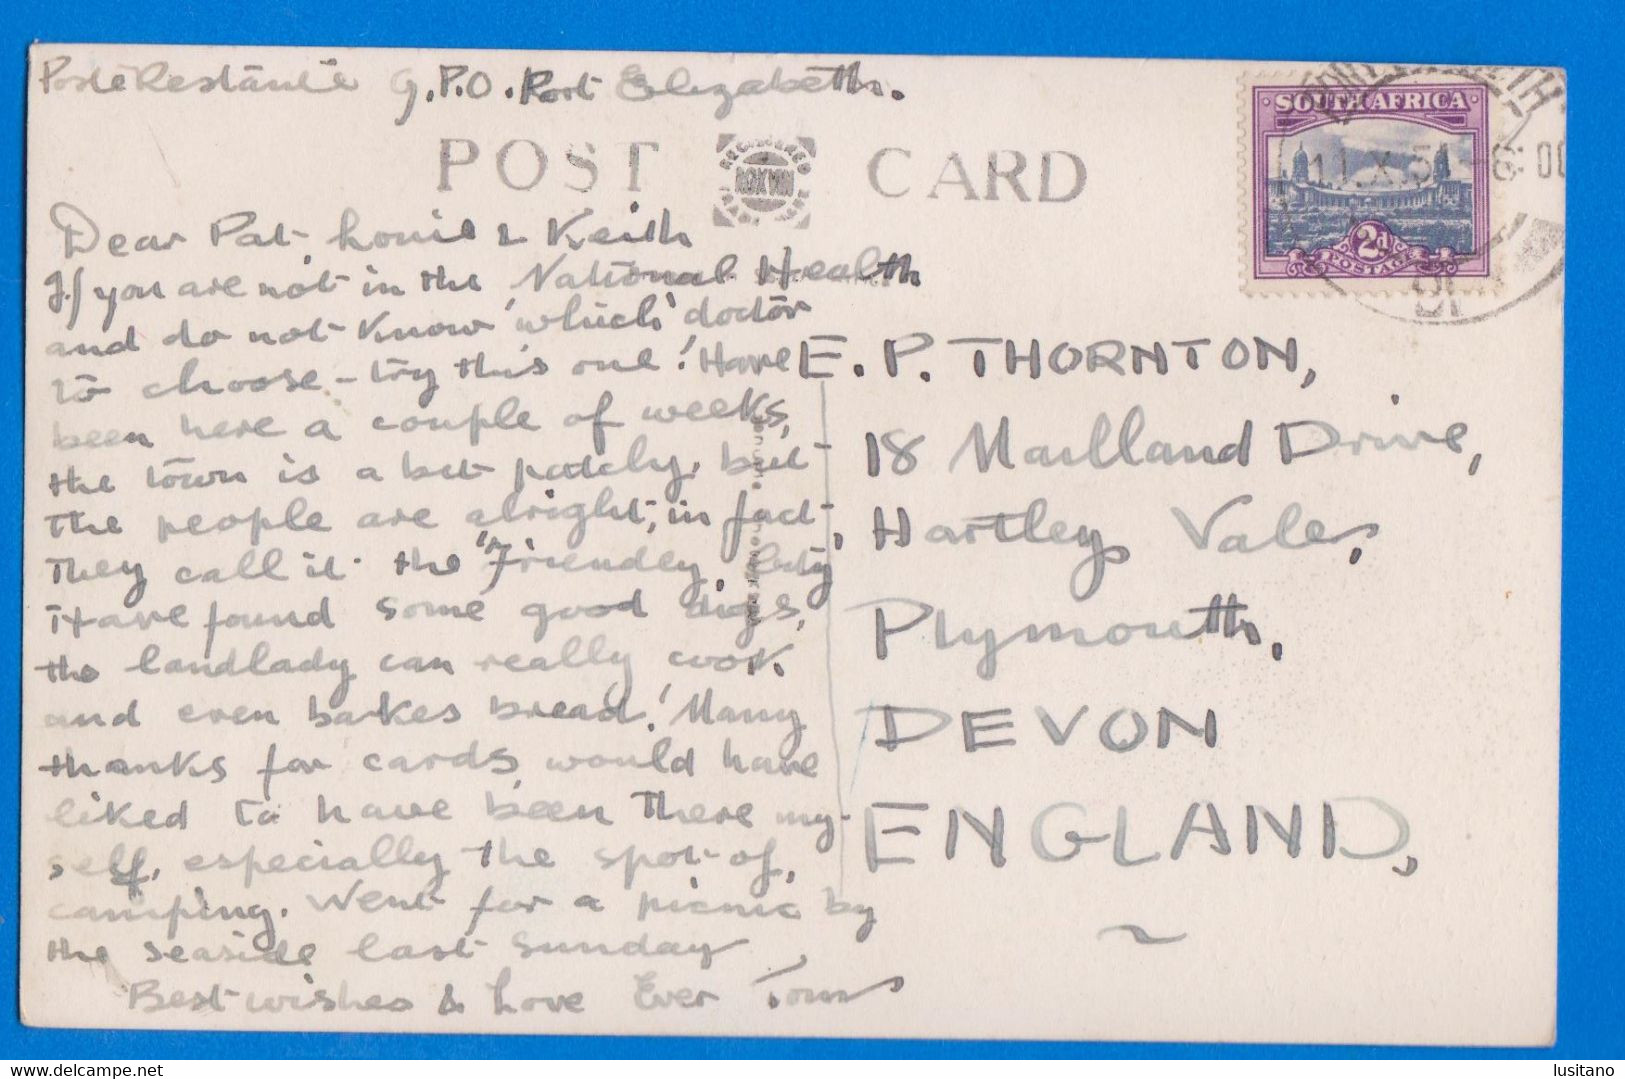 Poste Restante G.P.O. Port Elizabeth.
POST CARD
REGISTERED
ROKVIN
TRADE MARK
SOUTH AFRICA
2d
POSTAGE
11.X.51 - 8:00
Dear Pat Louie & Keith
If you are not in the National Health
and do not know 'which' doctor
to choose - try this one! Have
been here a couple of weeks,
the town is a bit patchy, but
the people are alright, in fact,
They call it the "Friendly City"
Have found some good digs,
the landlady can really cook
and even bakes bread! Many
thanks for cards, would have
liked to have been there my-
self, especially the spot of,
camping. Went for a picnic by
the seaside last Sunday
Best wishes & Love Ever Tom
E. P. THORNTON,
18 Maitland Drive,
Hartley Vale,
Plymouth,
DEVON
ENGLAND,
~
delcampe.net
lusitano